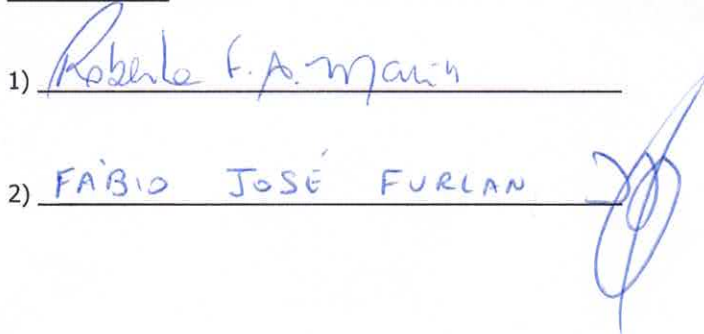 1) Roberta F. A. Marin
2) FÁBIO JOSÉ FURLAN